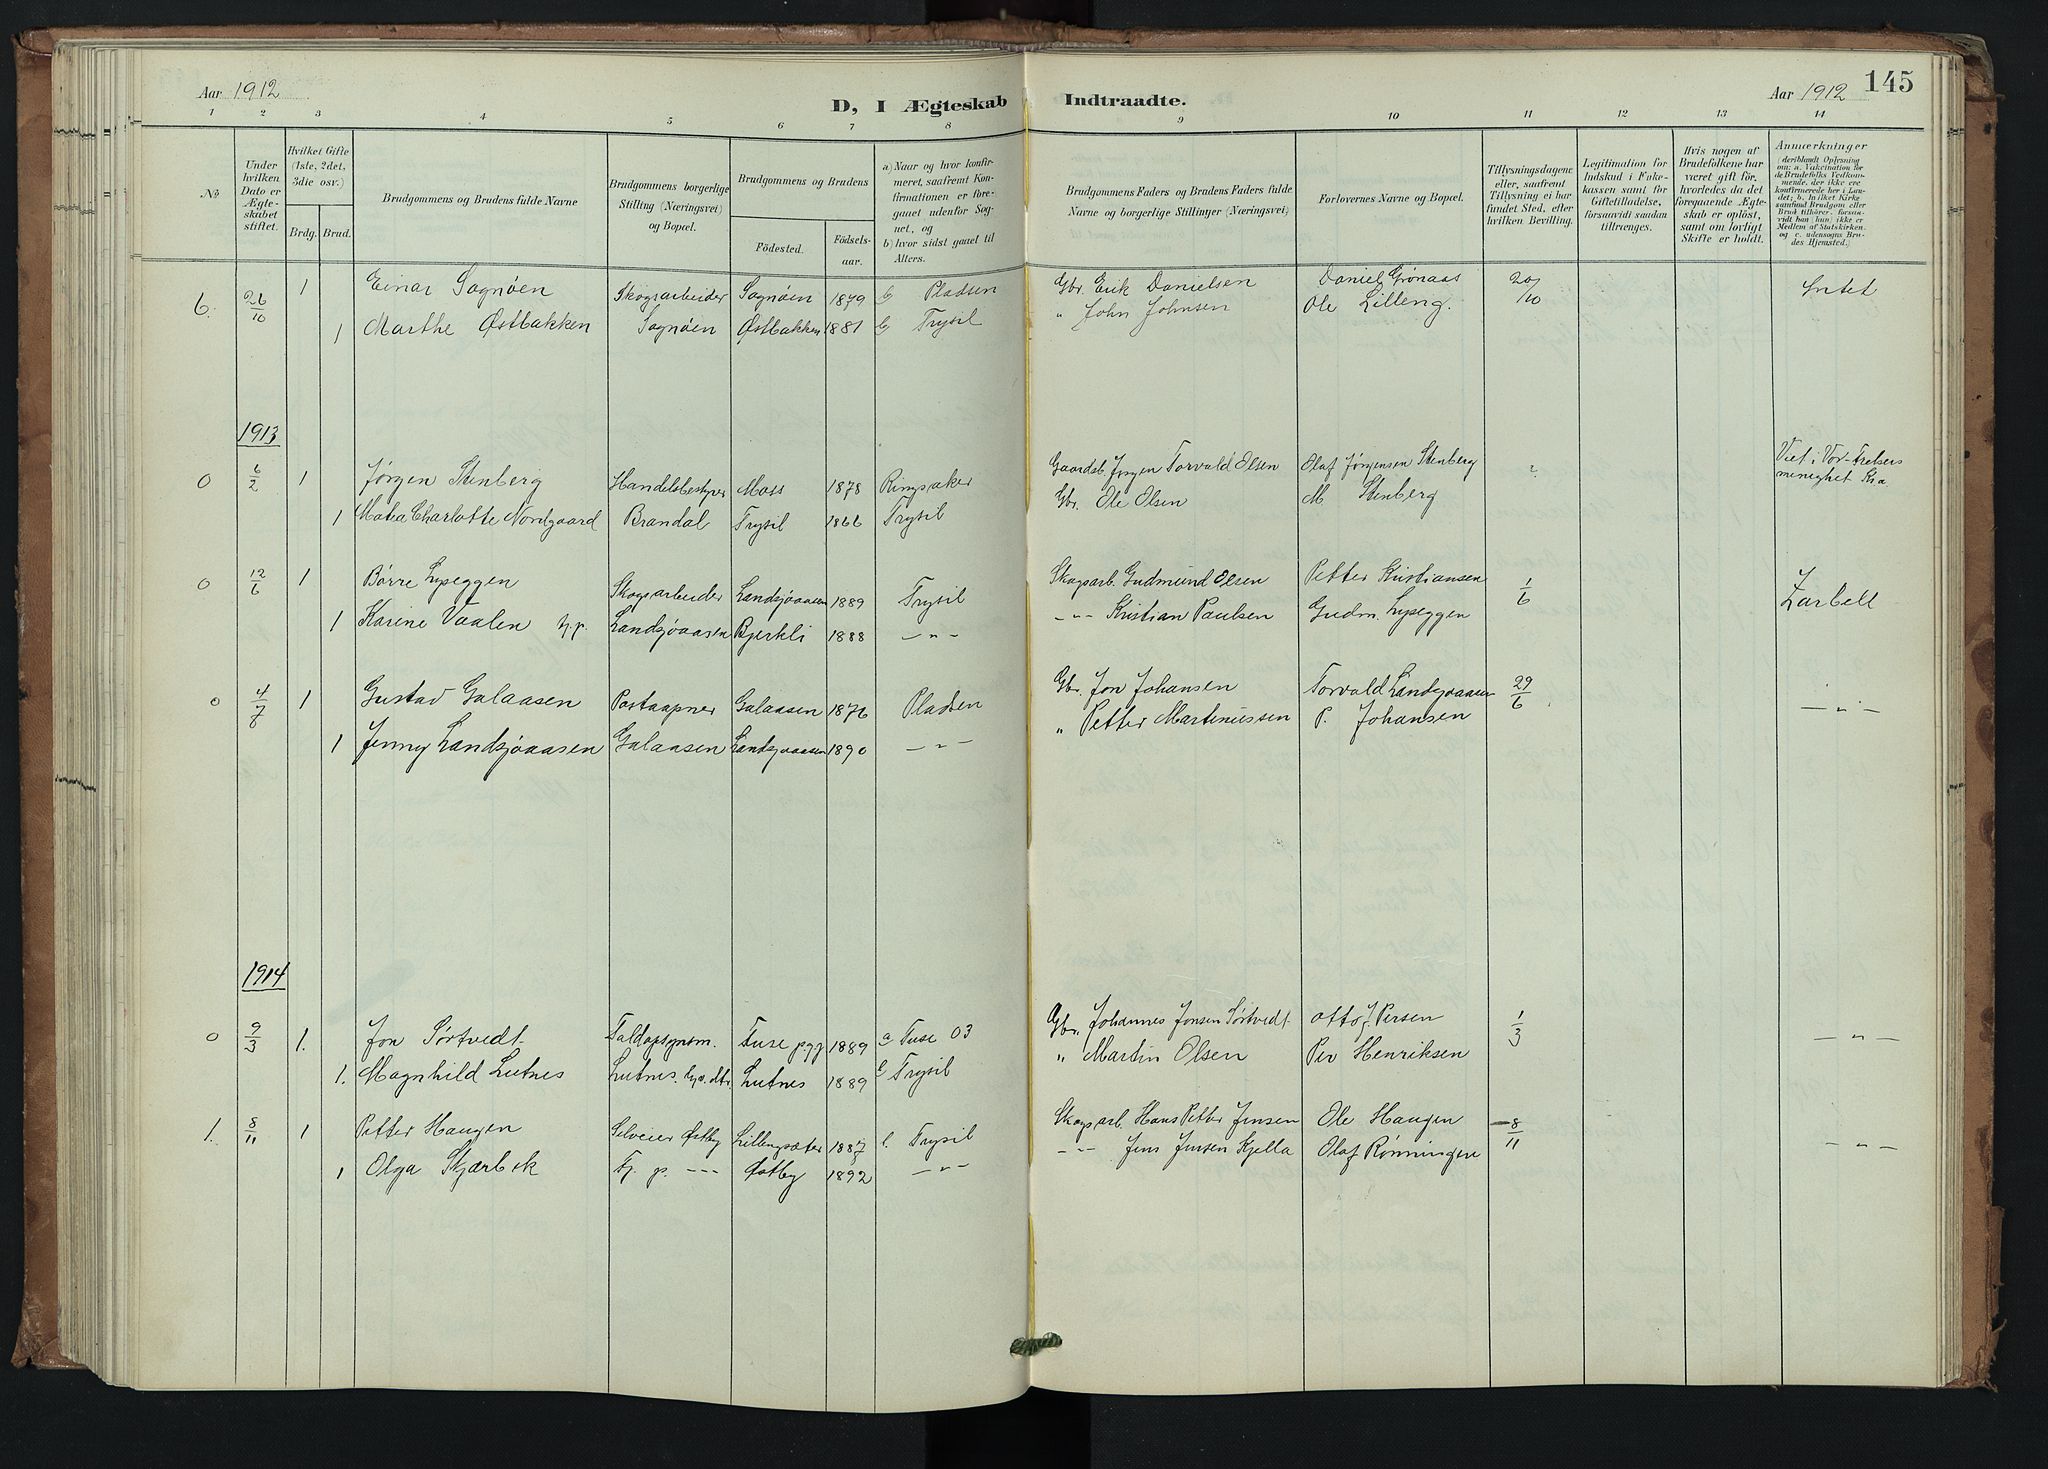 Aar 1912
D, I Ægteskab Indtraadte.
Aar 1912
145
1 2 3 4 5 6 7 8 9 10 11 12 13 14
No.
Under hvilken Dato er Ægteskabet stiftet.
Hvilket Gifte (1ste, 2det, 3die osv.)
Brdg. Brud.
Brudgommens og Brudens fulde Navne
Brudgommens borgerlige Stilling (Næringsvei) og Bopæl.
Brudgommens og Brudens
Födested. Födselsaar.
a) Naar og hvor konfirmeret, saafremt Konfirmationen er foregaaet udenfor Sognet, og b) hvor sidst gaaet til Alters.
Brudgommens Faders og Brudens Faders fulde Navne og borgerlige Stillinger (Næringsvei)
Forlovernes Navne og Bopæl.
Tillysningsdagene eller, saafremt Tillysning ei har fundet Sted, efter hvilken Bevilling.
Legitimation for Indskud i Enkekassen samt for Giftetilladelse, forsaavidt saadan tiltrænges.
Hvis nogen af Brudefolkene har været gift för, hvorledes da det foregaaende Ægteskab er oplöst, samt om lovligt Skifte er holdt.
Anmærkninger (deriblandt Oplysning om: a. Vakcination for de Brudefolks Vedkommende, der ikke ere konfirmerede her i Landet; b. Hvilket Kirkesamfund Brudgom eller Brud tilhörer, forsaavidt han (hun) ikke er Medlem af Statskirken, og c. udensogns Brudes Hjemsted.)
6. 26/10 1 Einar Sognöen Skogsarbeider Sognöen 1879 b Pladsen Gbr. Erik Danielsen Daniel Grønaas 20/10 Intet
1 Marthe Østbakken Sognöen Østbakken 1881 b Trysil " John Johnsen Ole Lilleng.
1913
0 6/2 1 Jørgen Stenberg Handelsbestyrer Moss 1878 Ringsaker Gaardsb. Jørgen Torvald Olsen Olaf Jørgensen Stenberg ? Viet i Vor-Frelsers
1 Matea Charlotte Nordgaard Brandal Trysil 1866 Trysil Gbr. Ole Olsen M. Stenberg menighet Kra.
0 12/6 1 Børre Lyseggen Skogsarbeider Landsjøaasen 1889 Trysil Skogsarb. Gudmund Olsen Petter Kristiansen 1/6
1 Karine Vaalen tj.p. Landsjøaasen Bjerkli 1888 — " — — " — Kristian Paulsen Gudm. Lyseggen
0 4/7 1 Gustav Galaasen Postaapner Galaasen 1876 Pladsen Gbr. Jon Johansen Torvald Landsjøaasen 29/6 — " —
1 Jenny Landsjøaasen Galaasen Landsjøaasen 1890 — " — " Petter Martinussen P. Johansen
1914
0 9/3 1. Jon Sørtvedt Faldopsynsm. Tuse pgj 1889 a Tuse 03 Gbr. Johannes Jonsen Sørtvedt Otto J. Persen 1/3 — " —
1. Magnhild Lutnes Lutnes. Lutnes 1889 b Trysil " Martin Olsen Per Henriksen
1. 8/11 1 Petter Haugen Selveier Østby Lillengsæter 1887 b. Trysil Skogsarb. Hans Petter Jensen Ole Haugen 8/11 — " —
1 Olga Skjærbek Tj. p. --- Østby 1892 — " — — " — Jens Jensen Kjella Olaf Rønningen